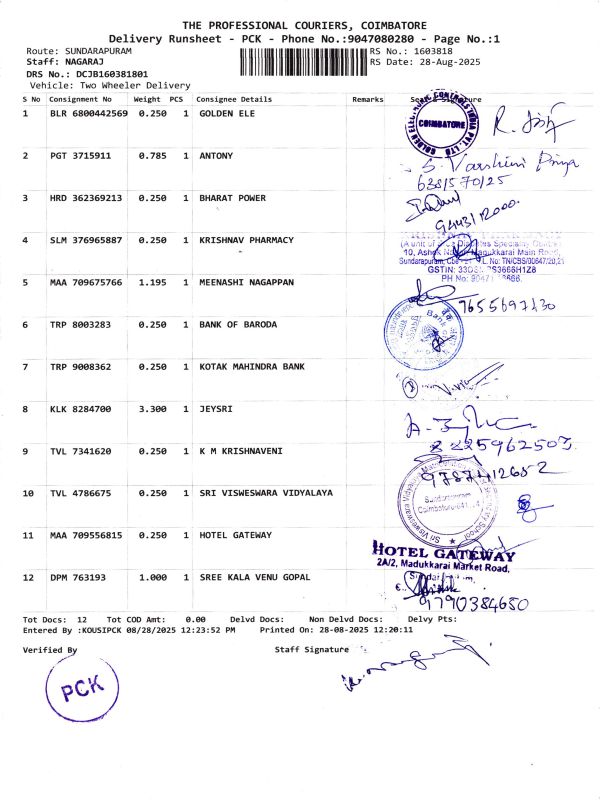 THE PROFESSIONAL COURIERS, COIMBATORE
Delivery Runsheet - PCK - Phone No.:9047080280 - Page No.:1
Route: SUNDARAPURAM RS No.: 1603818
Staff: NAGARAJ RS Date: 28-Aug-2025
DRS No.: DCJB160381801
Vehicle: Two Wheeler Delivery
S No Consignment No Weight PCS Consignee Details Remarks Signature
1 BLR 6800442569 0.250 1 GOLDEN ELE
COIMBATORE
2 PGT 3715911 0.785 1 ANTONY
S. Varshini Priya
3 HRD 362369213 0.250 1 BHARAT POWER
4 SLM 376965887 0.250 1 KRISHNAV PHARMACY
(A unit of Diabetes Speciality Centre)
10, Ashok Nagar, Madukkarai Main Road,
Sundarapuram,
5 MAA 709675766 1.195 1 MEENASHI NAGAPPAN
6 TRP 8003283 0.250 1 BANK OF BARODA
7 TRP 9008362 0.250 1 KOTAK MAHINDRA BANK
8 KLK 8284700 3.300 1 JEYSRI
9 TVL 7341620 0.250 1 K M KRISHNAVENI
9787412652
10 TVL 4786675 0.250 1 SRI VISWESWARA VIDYALAYA
Sundarapuram
11 MAA 709556815 0.250 1 HOTEL GATEWAY
HOTEL GATEWAY
2A/2, Madukkarai Market Road,
12 DPM 763193 1.000 1 SREE KALA VENU GOPAL
9790384650
Tot Docs: 12 Tot COD Amt: 0.00 Delvd Docs: Non Delvd Docs: Delvy Pts:
Entered By :KOUSIPCK 08/28/2025 12:23:52 PM Printed On: 28-08-2025 12:20:11
Verified By Staff Signature
PCK